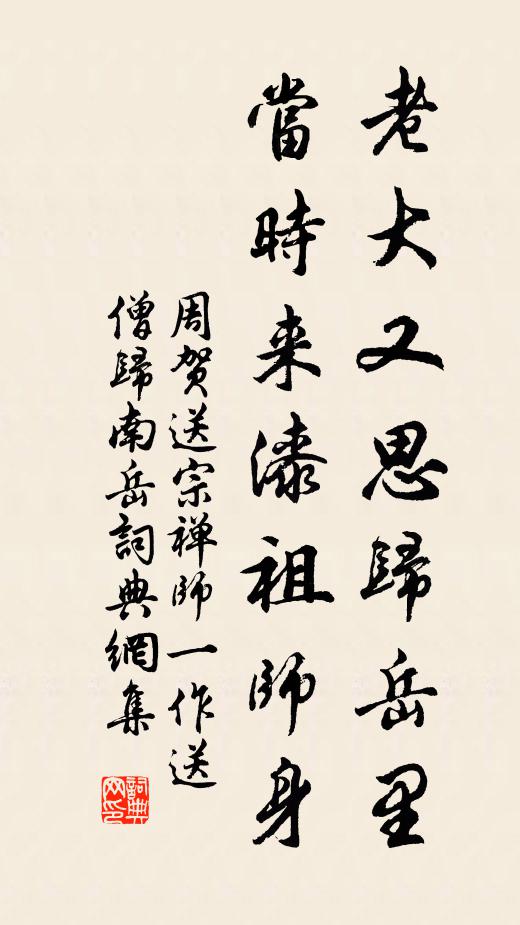 老大又思歸岳里
當時来漆祖師身
周贺送宗禅師一作送
僧歸南岳詞典網集
詞典
网印